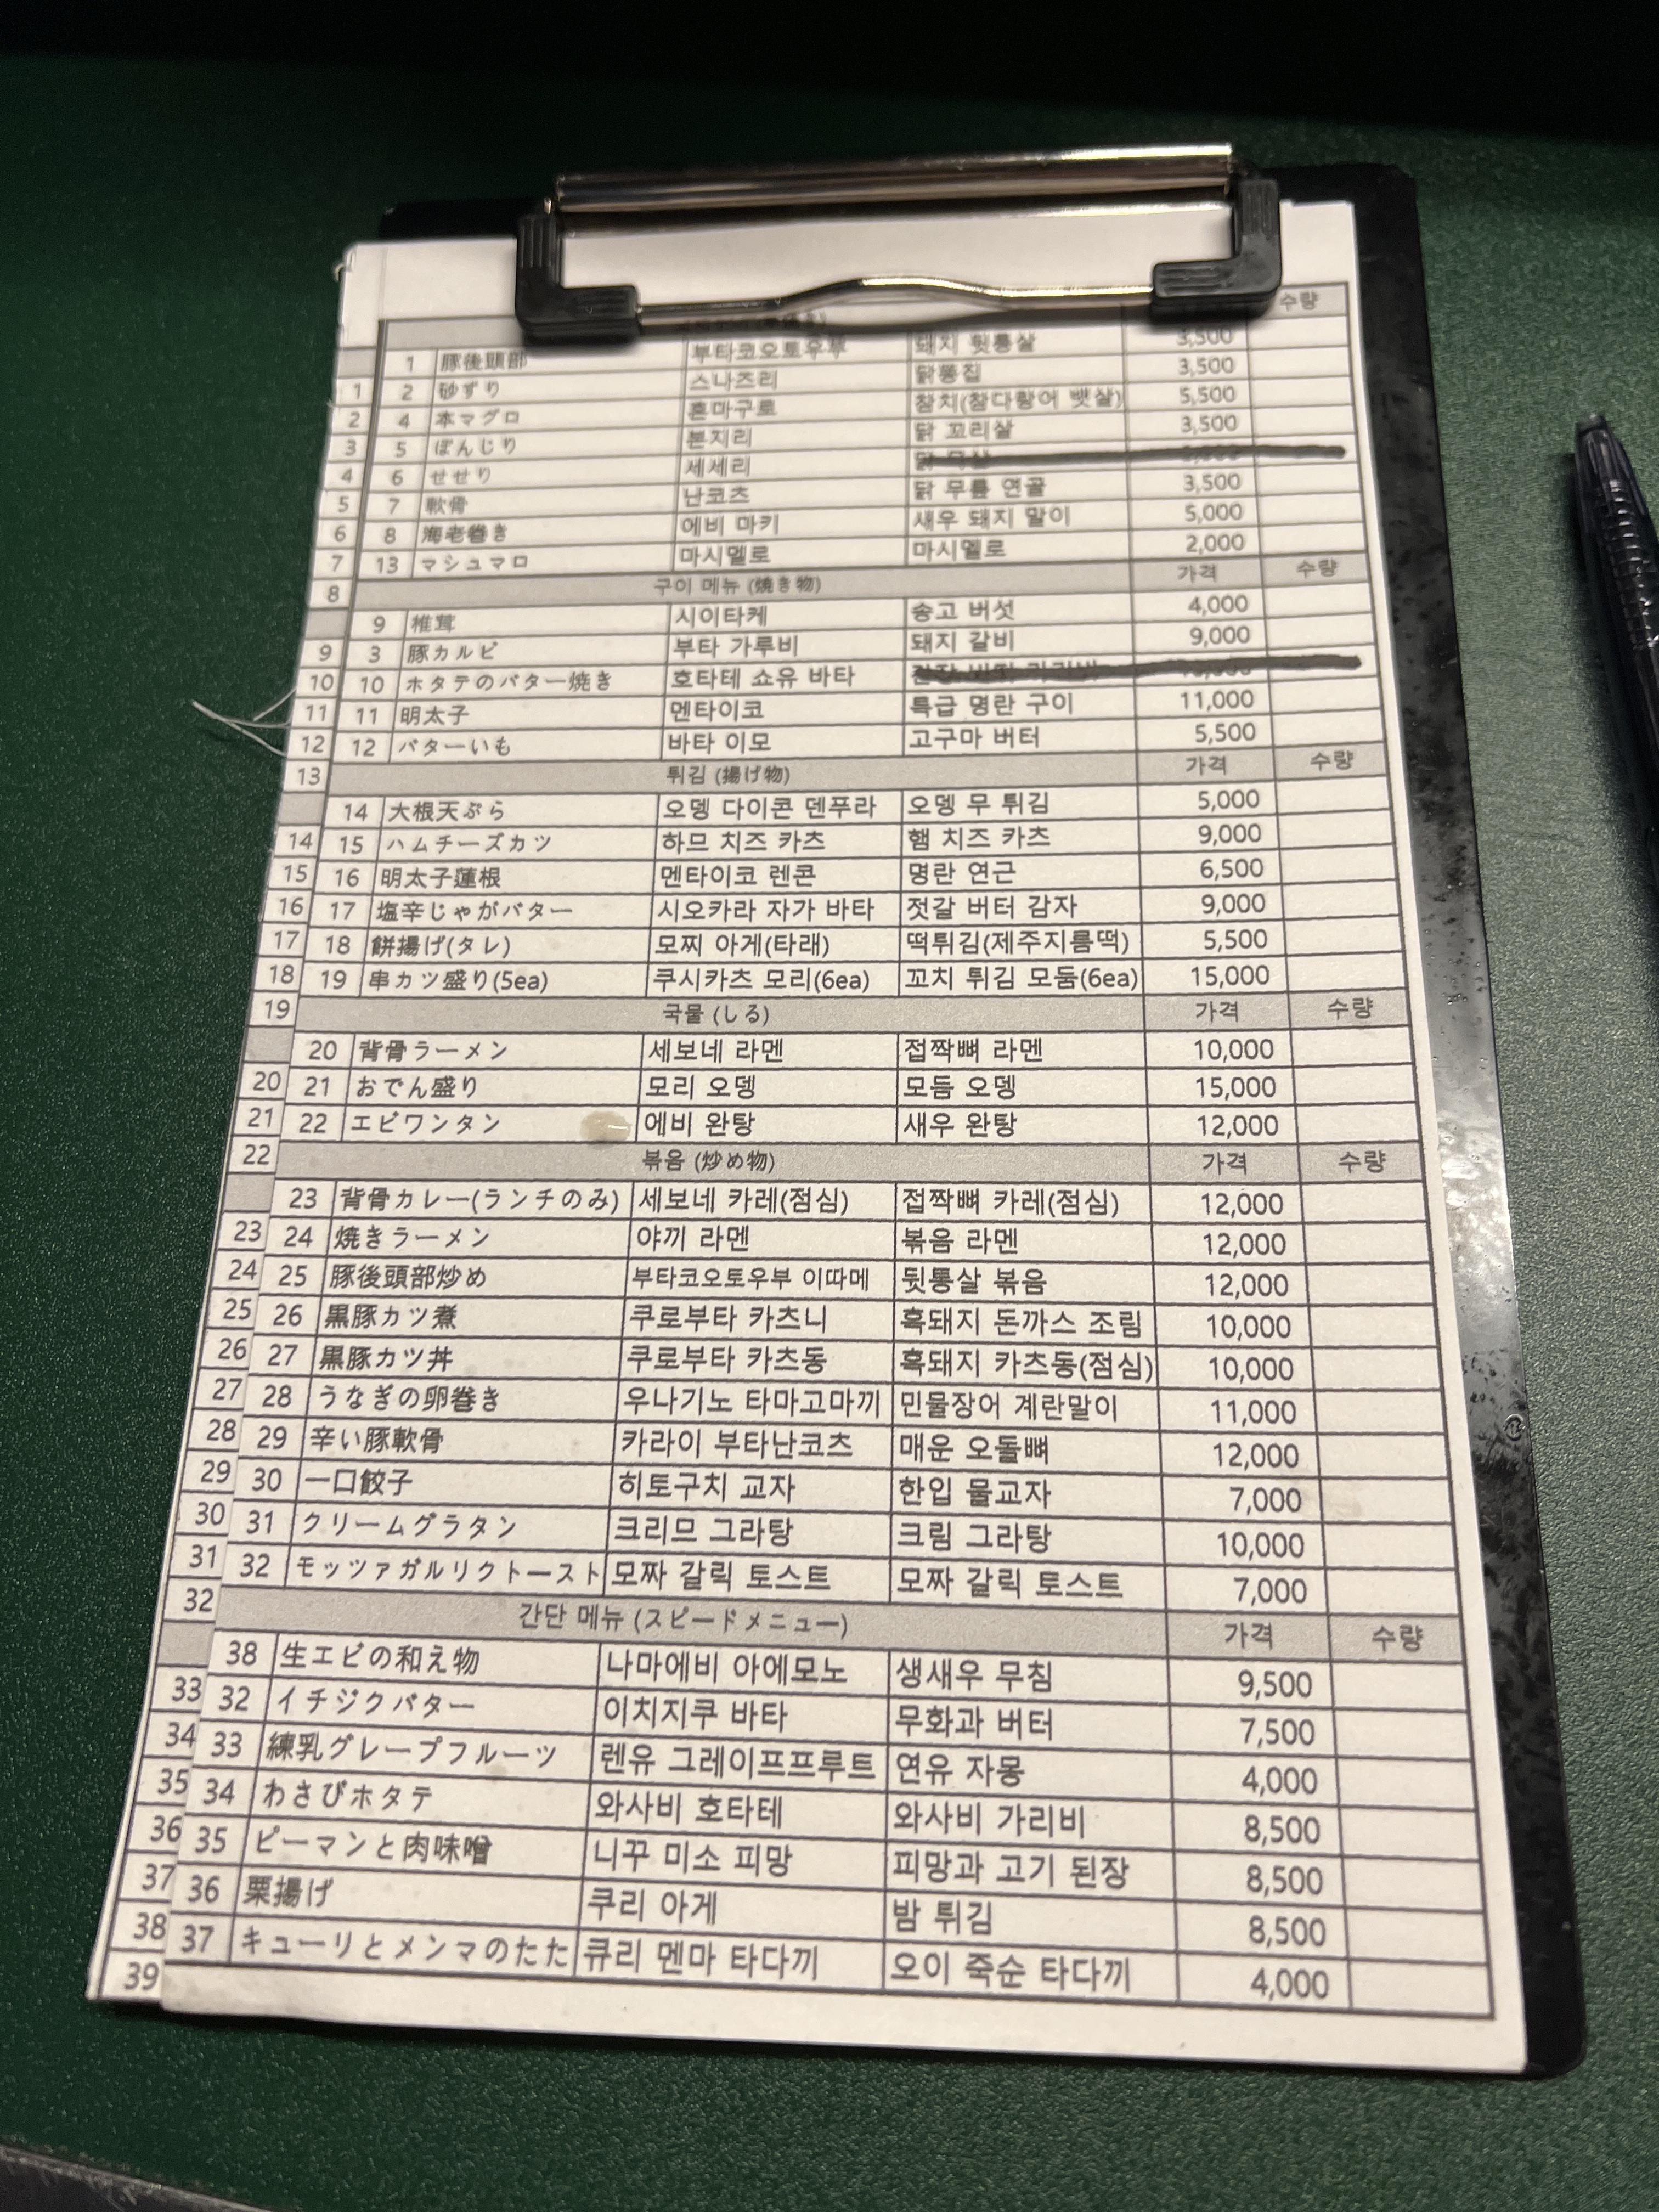 수량
1 豚後頭部 부타코오토우부 돼지 뒷통살 3,500
2 砂ずり 스나즈리 닭똥집 3,500
4 本マグロ 혼마구로 참치(참다랑어 뱃살) 5,500
5 ぼんじり 본지리 닭 꼬리살 3,500
6 せせり 세세리
7 軟骨 난코츠 닭 무릎 연골 3,500
8 海老巻き 에비 마키 새우 돼지 말이 5,000
13 マシュマロ 마시멜로 마시멜로 2,000
구이 메뉴 (焼き物) 가격 수량
9 椎茸 시이타케 송고 버섯 4,000
3 豚カルビ 부타 가루비 돼지 갈비 9,000
10 ホタテのバター焼き 호타테 쇼유 바타
11 明太子 멘타이코 특급 명란 구이 11,000
12 バターいも 바타 이모 고구마 버터 5,500
튀김 (揚げ物) 가격 수량
14 大根天ぷら 오뎅 다이콘 덴푸라 오뎅 무 튀김 5,000
15 ハムチーズカツ 하므 치즈 카츠 햄 치즈 카츠 9,000
16 明太子蓮根 멘타이코 렌콘 명란 연근 6,500
17 塩辛じゃがバター 시오카라 자가 바타 젓갈 버터 감자 9,000
18 餅揚げ(タレ) 모찌 아게(타래) 떡튀김(제주지름떡) 5,500
19 串カツ盛り(5ea) 쿠시카츠 모리(6ea) 꼬치 튀김 모둠(6ea) 15,000
국물 (しる) 가격 수량
20 背骨ラーメン 세보네 라멘 접짝뼈 라멘 10,000
21 おでん盛り 모리 오뎅 모듬 오뎅 15,000
22 エビワンタン 에비 완탕 새우 완탕 12,000
볶음 (炒め物) 가격 수량
23 背骨カレー(ランチのみ) 세보네 카레(점심) 접짝뼈 카레(점심) 12,000
24 焼きラーメン 야끼 라멘 볶음 라멘 12,000
25 豚後頭部炒め 부타코오토우부 이따메 뒷통살 볶음 12,000
26 黒豚カツ煮 쿠로부타 카츠니 흑돼지 돈까스 조림 10,000
27 黒豚カツ丼 쿠로부타 카츠동 흑돼지 카츠동(점심) 10,000
28 うなぎの卵巻き 우나기노 타마고마끼 민물장어 계란말이 11,000
29 辛い豚軟骨 카라이 부타난코츠 매운 오돌뼈 12,000
30 一口餃子 히토구치 교자 한입 물교자 7,000
31 クリームグラタン 크리므 그라탕 크림 그라탕 10,000
32 モッツァガルリクトースト 모짜 갈릭 토스트 모짜 갈릭 토스트 7,000
간단 메뉴 (スピードメニュー) 가격 수량
38 生エビの和え物 나마에비 아에모노 생새우 무침 9,500
32 イチジクバター 이치지쿠 바타 무화과 버터 7,500
33 練乳グレープフルーツ 렌유 그레이프프루트 연유 자몽 4,000
34 わさびホタテ 와사비 호타테 와사비 가리비 8,500
35 ピーマンと肉味噌 니꾸 미소 피망 피망과 고기 된장 8,500
36 栗揚げ 쿠리 아게 밤 튀김 8,500
37 キューリとメンマのたた 큐리 멘마 타다끼 오이 죽순 타다끼 4,000
1
2
3
4
5
6
7
8
9
10
11
12
13
14
15
16
17
18
19
20
21
22
23
24
25
26
27
28
29
30
31
32
33
34
35
36
37
38
39